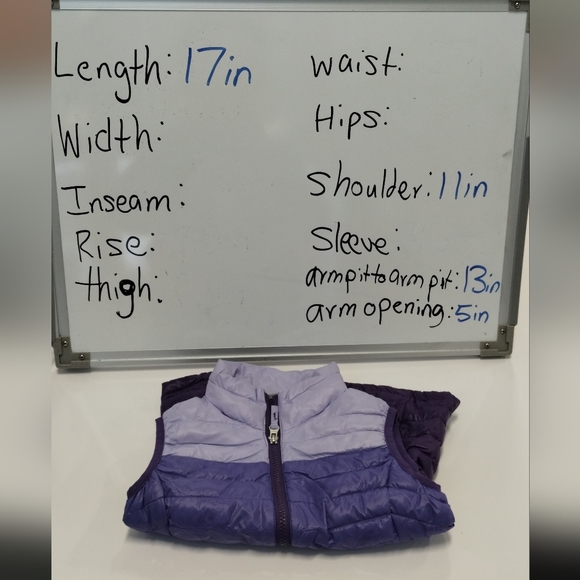 Length: 17in
Width:
Inseam:
Rise:
thigh:
waist:
Hips:
Shoulder: 11in
Sleeve:
armpit to arm pit: 13in
arm opening: 5in